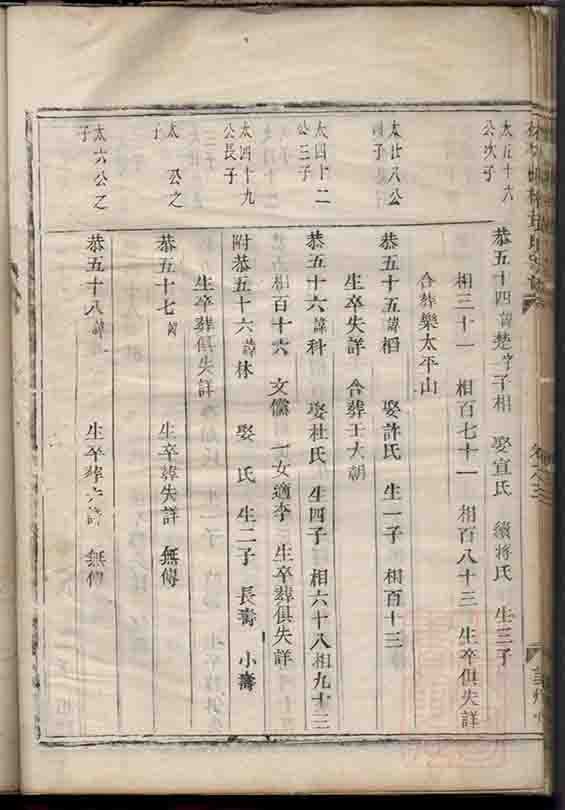 太五十六
公次子
恭五十四諱楚字子相 娶宣氏 續蔣氏 生三子
相三十一 相百七十一 相百八十三 生卒俱失詳
合葬樂太平山
太廿八公
子
恭五十五諱稻 娶許氏 生一子 相百十三
生卒失詳 合葬王大朝
太四十二
公三子
恭五十六諱科 娶杜氏 生四子 相六十八相九十三
相百十六 文儻 一女適李 生卒葬俱失詳
太四十九
公長子
附恭五十六諱林 娶 氏 生二子 長壽 小壽
生卒葬俱失詳
太 公之
子
恭五十七諱 生卒葬失詳 無傳
太六公之
子
恭五十八諱 生卒葬失詳 無傳